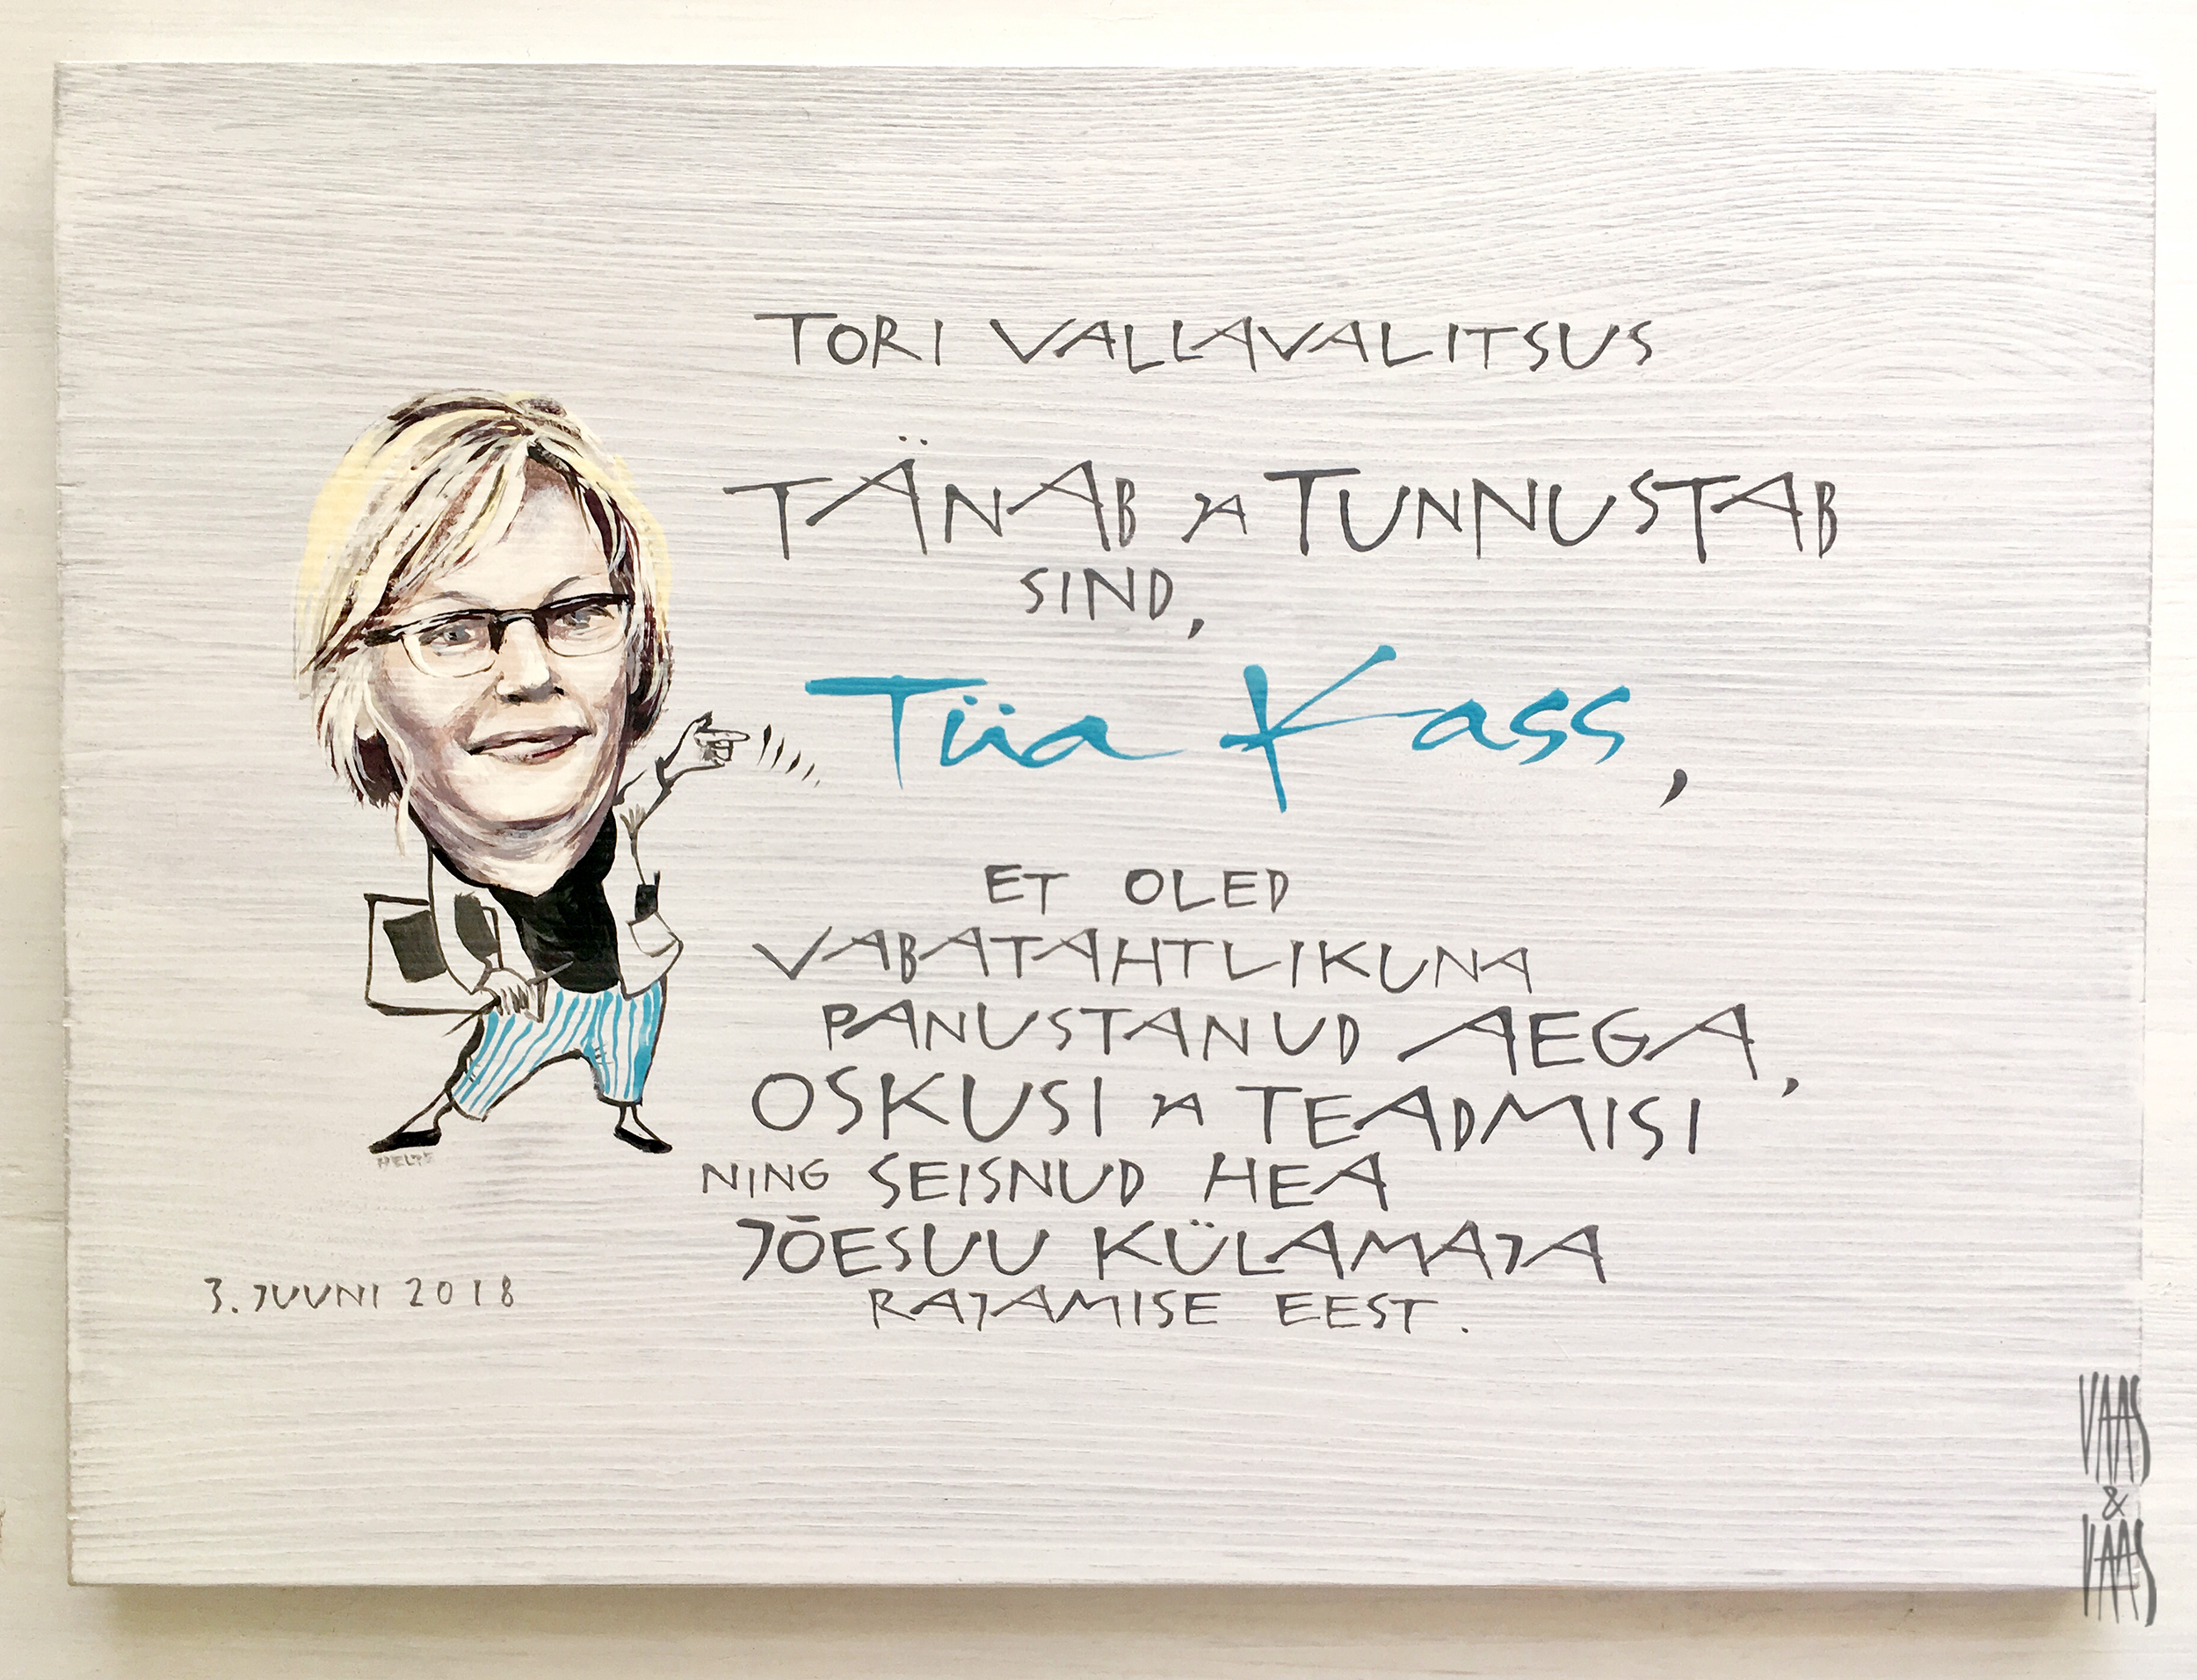 TORI VALLAVALITSUS
TÄNAB JA TUNNUSTAB
SIND,
Tiia Kass,
ET OLED
VABATAHTLIKUNA
PANUSTANUD AEGA,
OSKUSI JA TEADMISI
NING SEISNUD HEA
JÕESUU KÜLAMAJA
RAJAMISE EEST.
3. JUUNI 2018
VAAS
&
VAAS